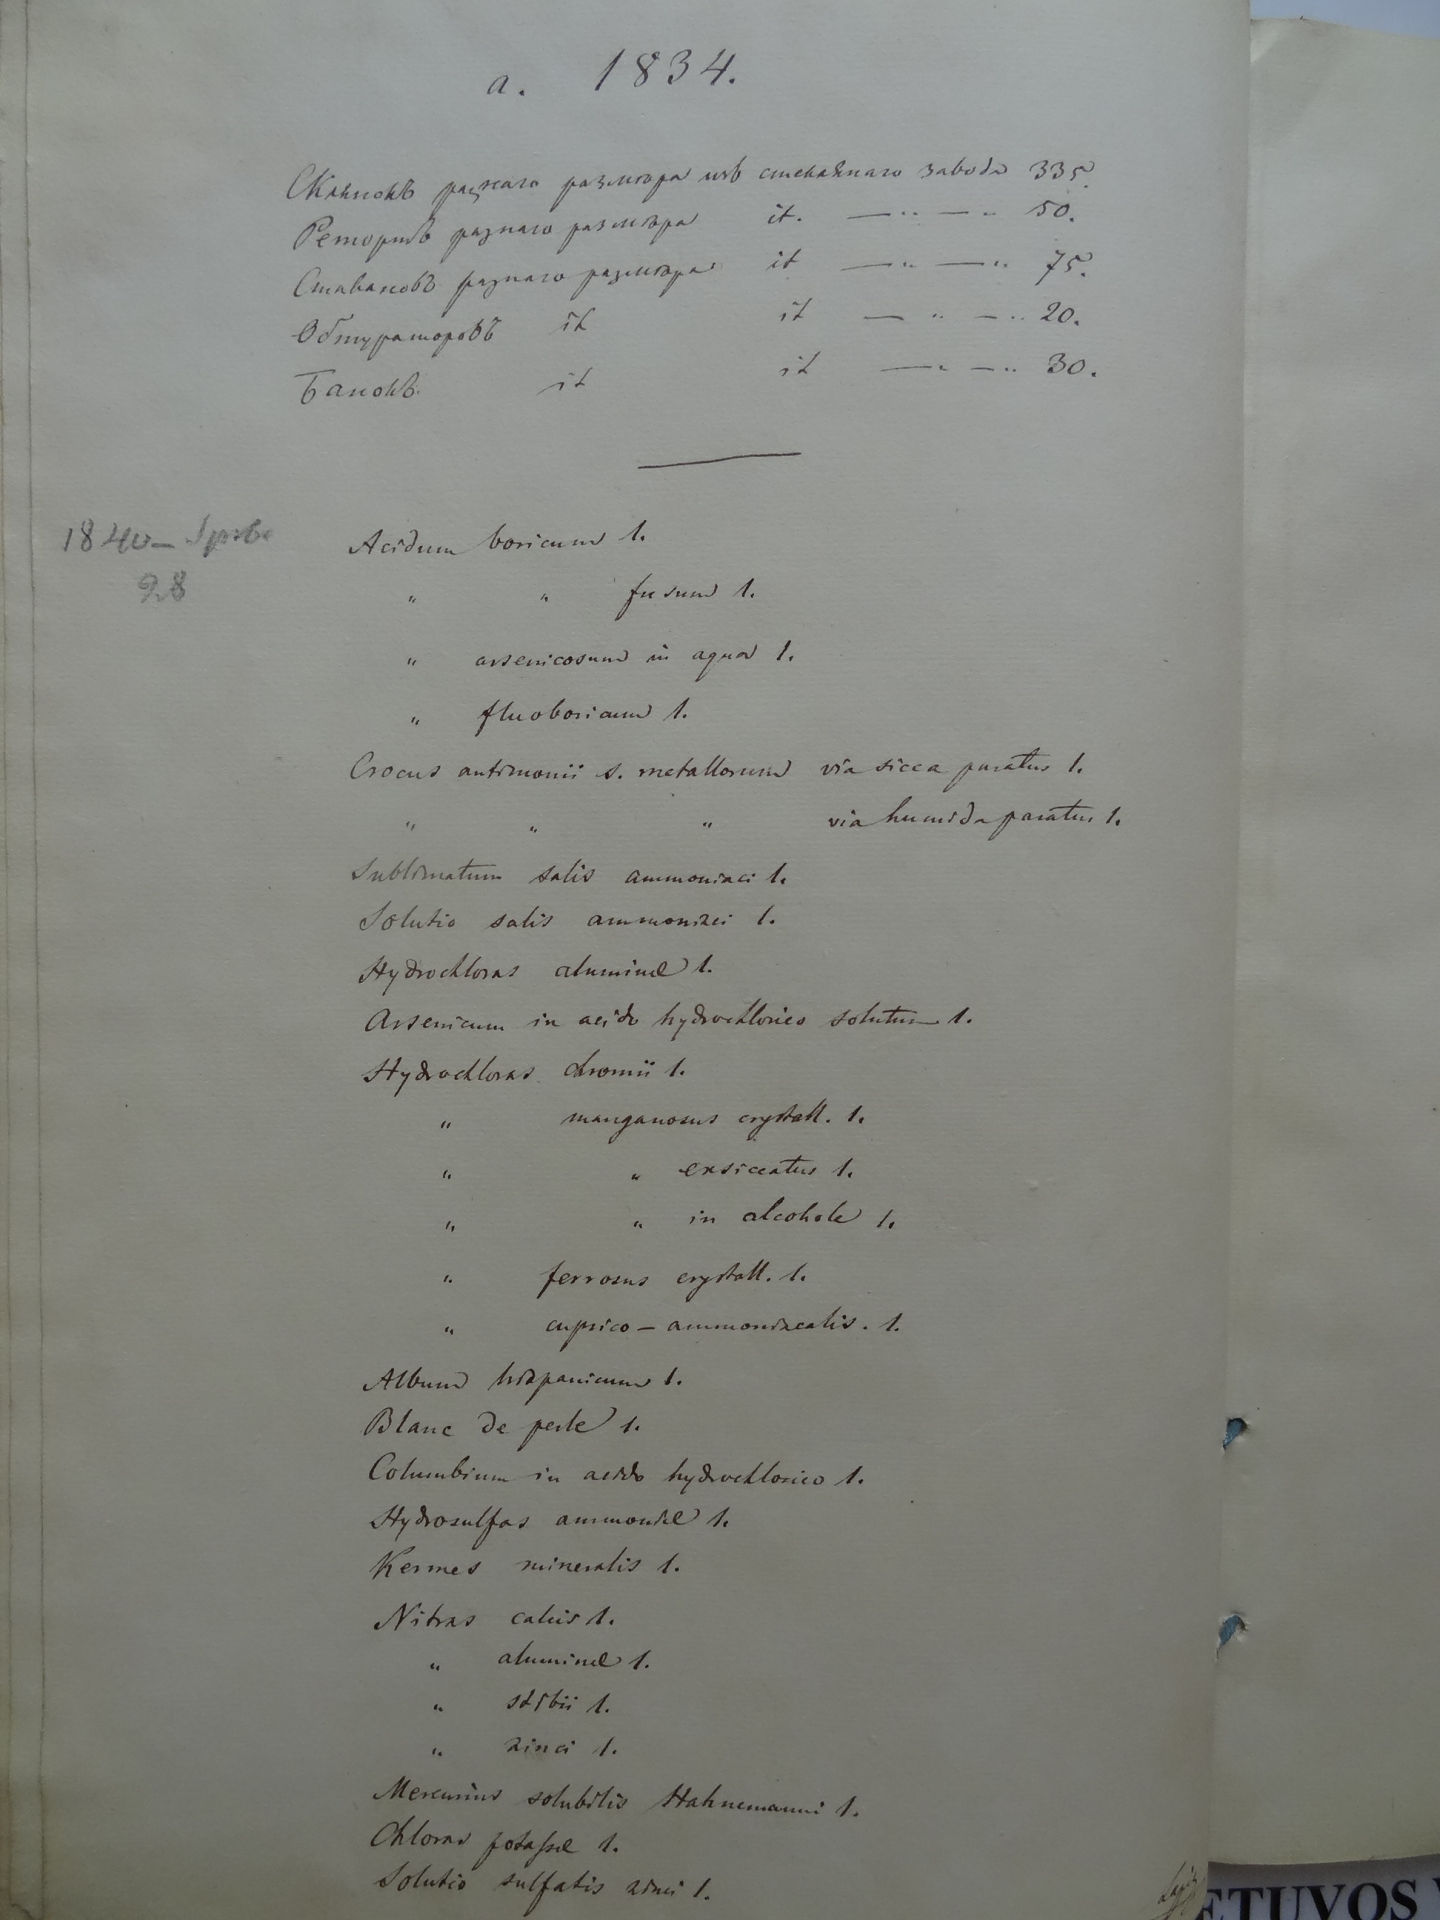 a. 1834.
Склянокъ разнаго размѣра изъ стекляннаго завода 335.
Ретортъ разнаго размѣра it. — „ — „ 50.
Стакановъ разнаго размѣра it — „ — „ 75.
Обтураторовъ it it — „ — „ 20.
Банокъ it it — „ — „ 30.
1840 —
98
Acidum boricum 1.
„ „ fusum 1.
„ arsenicosum in aqua 1.
„ fluoboricum 1.
Crocus antimonii s. metallorum via sicca paratus 1.
„ „ „ via humida paratus 1.
Sublimatum salis ammoniaci 1.
Solutio salis ammoniaci 1.
Hydrochloras aluminae 1.
Arsenicum in acido hydrochlorico solutum 1.
Hydrochloras chromii 1.
„ manganosus crystall. 1.
„ „ exsiccatus 1.
„ „ in alcohole 1.
„ ferrosus crystall. 1.
„ cuprico – ammoniacalis. 1.
Album hispanicum 1.
Blanc de perle 1.
Columbium in acido hydrochlorico 1.
Hydrosulfas ammoniae 1.
Kermes mineralis 1.
Nitras calcis 1.
„ aluminae 1.
„ stibii 1.
„ zinci 1.
Mercurius solubilis Hahnemanni 1.
Chloras potassae 1.
Solutio sulfatis zinci 1.
ETUVOS